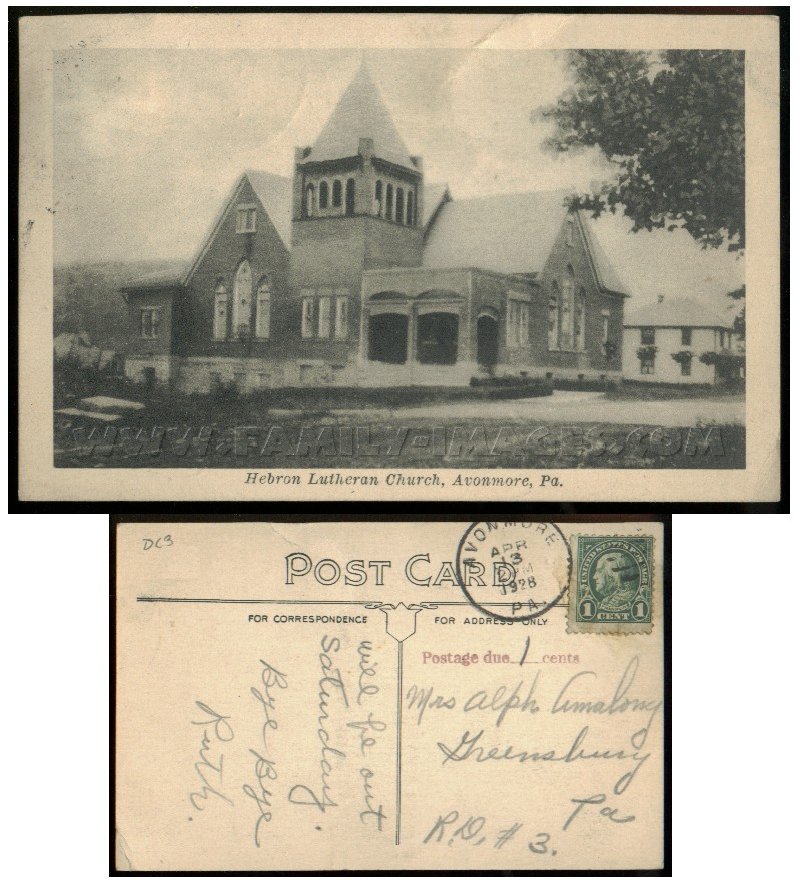 WWW.FAMILY-IMAGES.COM
Hebron Lutheran Church, Avonmore, Pa.
DC3
POST CARD
AVONMORE
APR
13
PM
1928
PA.
UNITED STATES POSTAGE
1 CENT 1
FOR CORRESPONDENCE
FOR ADDRESS ONLY
Postage due 1 cents
will be out
Saturday.
Bye Bye
Ruth.
Mrs Alph Amalong
Greensburg
Pa
R.D. # 3.